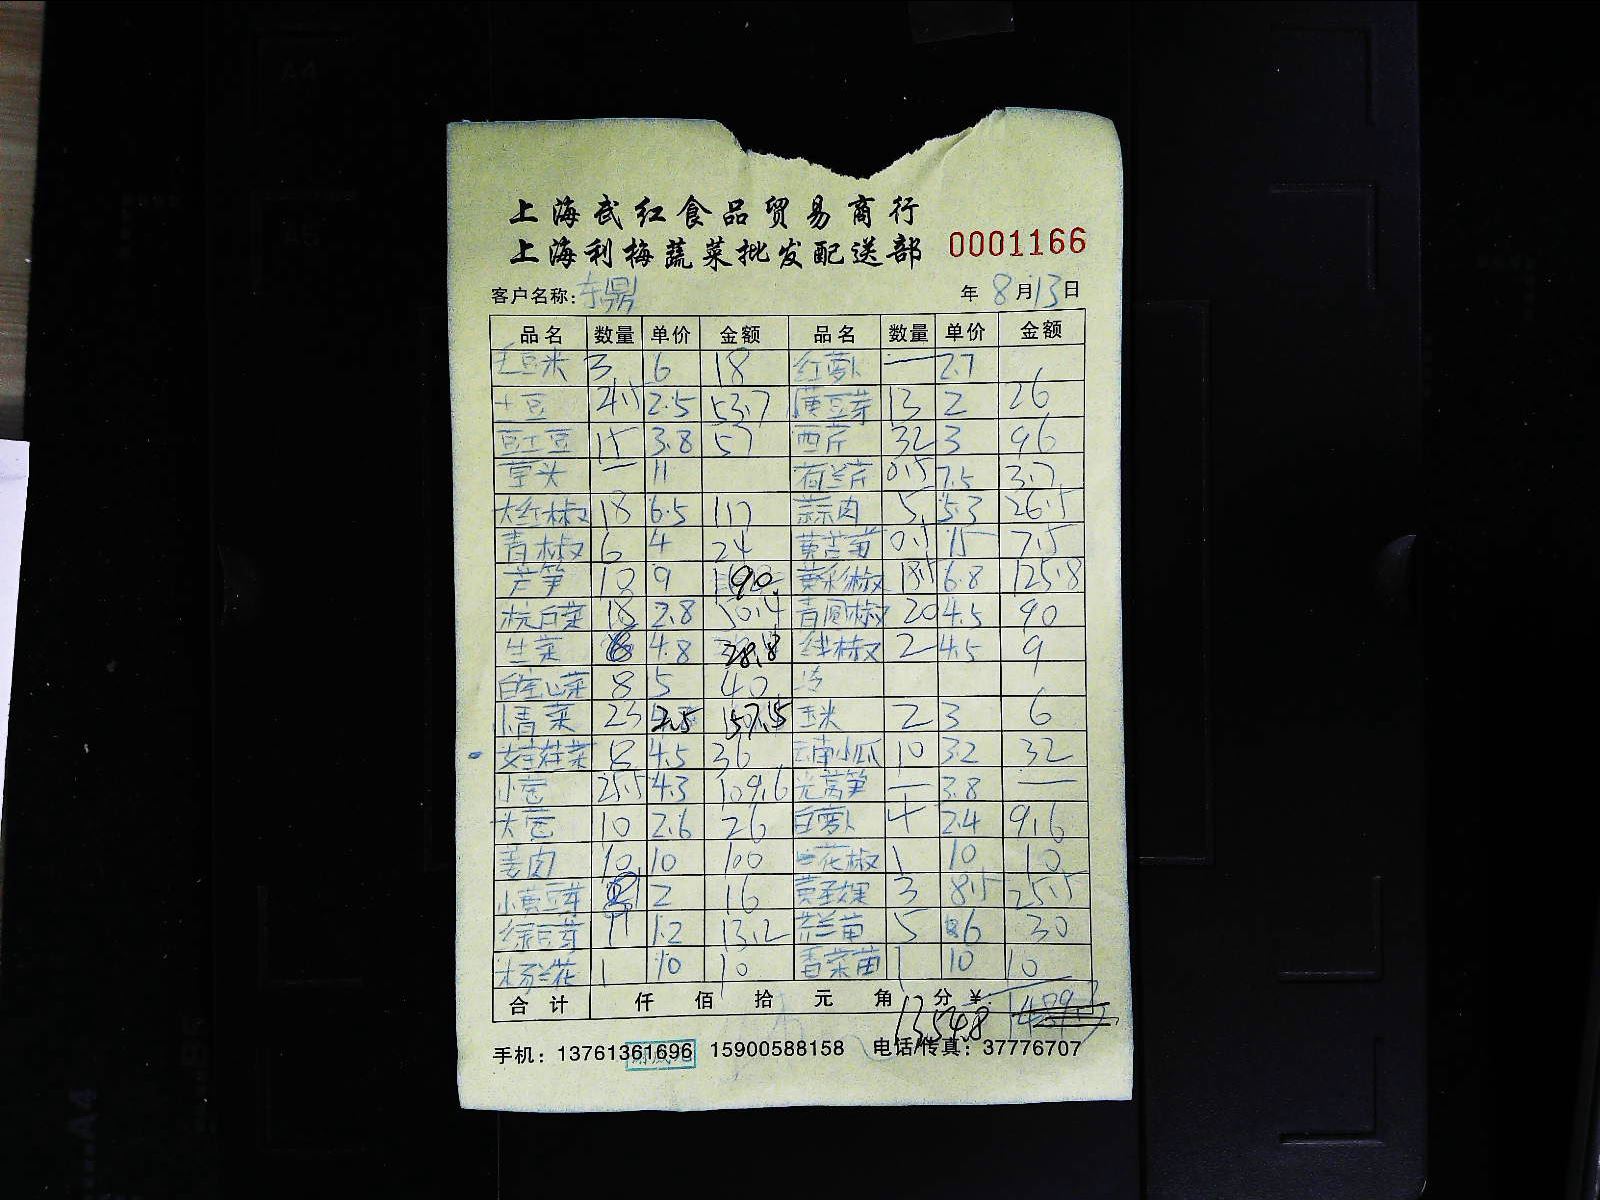 上海武红食品贸易商行
上海利梅蔬菜批发配送部 0001166
客户名称: 东鼎 年 8月13日
品名 数量 单价 金额 品名 数量 单价 金额
毛豆米 3 6 18 红萝卜 一 2.7
土豆 2.5 53.7 黄豆芽 13 2 26
豆土豆 15 3.8 57 西芹 32 3 96
草头 一 11 荷兰芹 0.5 7.5 3.7
大红椒 18 6.5 117 蒜肉 5 5.3 26.5
青椒 6 4 24 黄 0.5 15 7.5
芦笋 10 9 90 黄彩椒 18.5 6.8 125.8
杭白菜 18 2.8 50.4 青圆椒 20 4.5 90
生菜 4.8 28.8 线椒 2 4.5 9
白空心菜 8 5 40
小青菜 23 2.5 玉米 2 3 6
娃娃菜 8 4.5 36 云南小瓜 10 32 32
小葱 25.5 4.3 109.6 光莴笋 一 3.8 一
大葱 10 2.6 26 白萝卜 4 2.4 9.6
姜肉 10 10 100 花椒 1 10 10
小黄豆芽 2 16 黄 3 8.5 25.5
绿豆芽 11 1.2 13.2 苗 5 6 30
杨兰花 1 10 10 香菜苗 1 10 10
合计 仟 佰 拾 元 角 分 ¥:
1354.8
手机: 13761361696 15900588158 电话/传真: 37776707